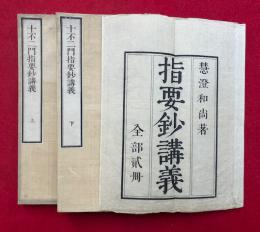 慧澄和尚著
指要鈔講義
全部貳冊
十不二門指要鈔講義 下
十不二門指要鈔講義 上